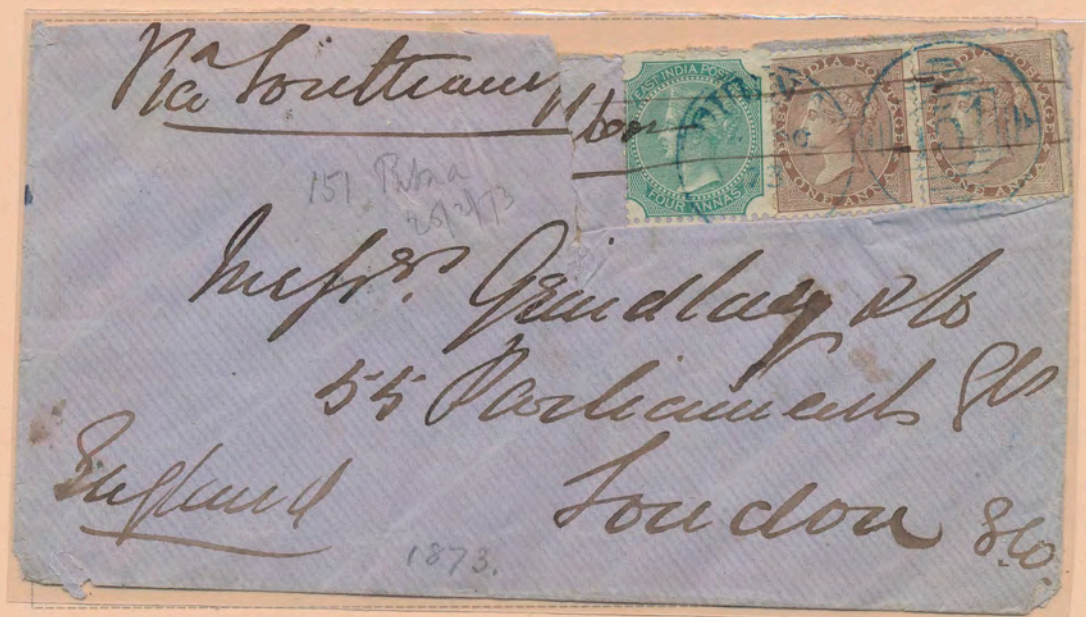 Via Southampton
EAST INDIA POSTAGE
FOUR ANNAS
EAST INDIA POSTAGE
ONE ANNA
EAST INDIA POSTAGE
ONE ANNA
151 Patna
26/2/73
Messrs. Grindlay & Co
55 Parliament St
London
England
1873.